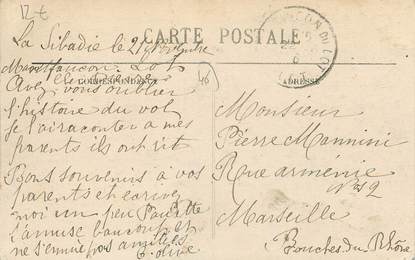 12 €
CARTE POSTALE
La Sibadie le 21 9bre
Montfaucon. Lot
CORRESPONDANCE
ADRESSE
46
Avez vous oublier
l'histoire du vol
je l'ai raconter a mes
parents ils ont rit
Bons souvenirs à vos
parents et écrive
moi un peu Paulette
s'amuse beaucoup et
ne s'ennuie pas
E. Olive
Monsieur
Pierre Mannini
Rue arménie
N° 2
Marseille
Bouches-du-Rhône